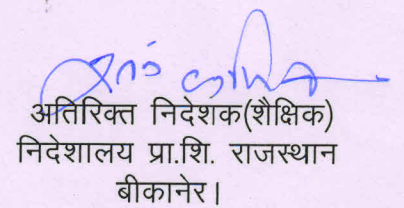 अतिरिक्त निदेशक(शैक्षिक)
निदेशालय प्रा.शि. राजस्थान
बीकानेर।